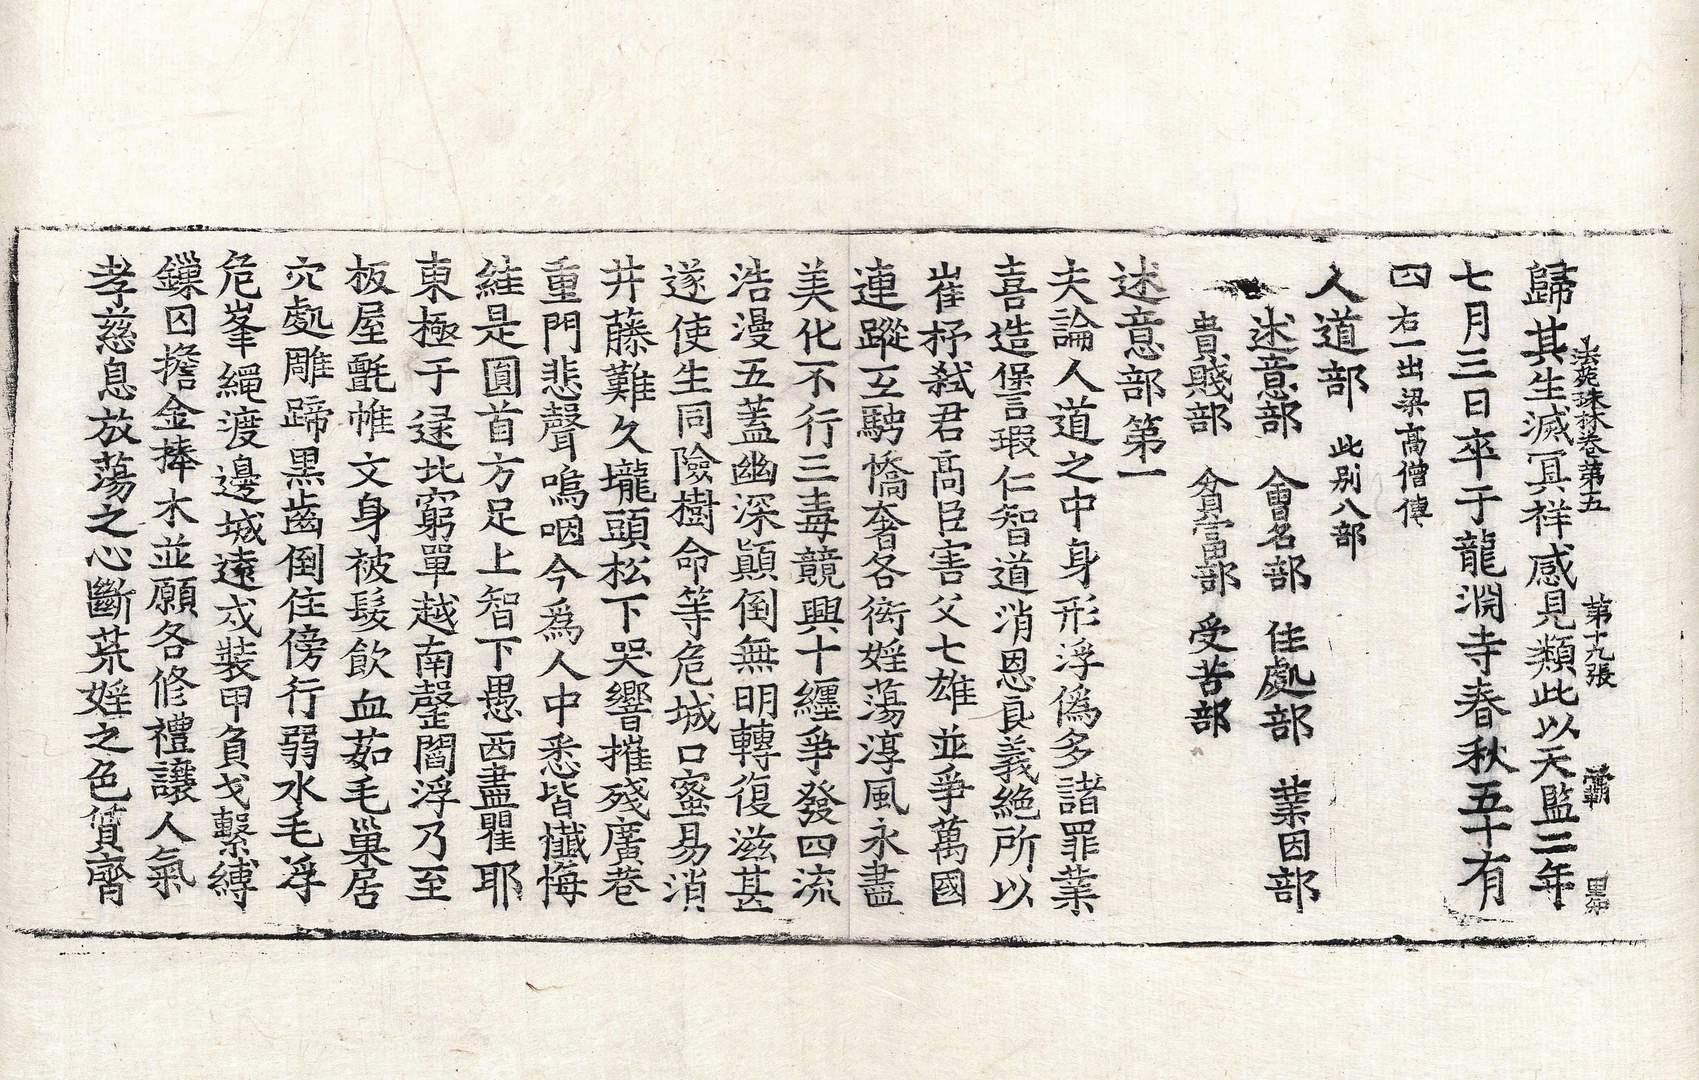 法苑珠林卷第五 第十九張 覇
歸其生滅冥祥感見類此以天監二年
七月三日卒于龍淵寺春秋五十有
四 右一出梁高僧傳
人道部 此別八部
述意部 會名部 住處部 業因部
貴賤部 貧富部 受苦部
述意部第一
夫論人道之中身形浮僞多諸罪業
喜造堡言瑕仁智道消恩良義絕所以
崔杼弒君高臣害父七雄並爭萬國
連蹤互騁憍奢各衒婬蕩淳風永盡
美化不行三毒競興十纏爭發四流
浩漫五蓋幽深顚倒無明轉復滋甚
遂使生同險樹命等危城口蜜易消
井藤難久壠頭松下哭響摧殘廣巷
重門悲聲嗚咽今爲人中悉皆懺悔
維是圓首方足上智下愚西盡瞿耶
東極于逮北窮單越南罄閻浮乃至
板屋氈帷文身被髮飮血茹毛巢居
穴處雕蹄黑齒倒住傍行弱水毛浮
危峯繩渡邊城遠戍裝甲負戈繫縛
鏁囚擔金捧木並願各修禮讓人氣
孝慈息放蕩之心斷荒婬之色質齊